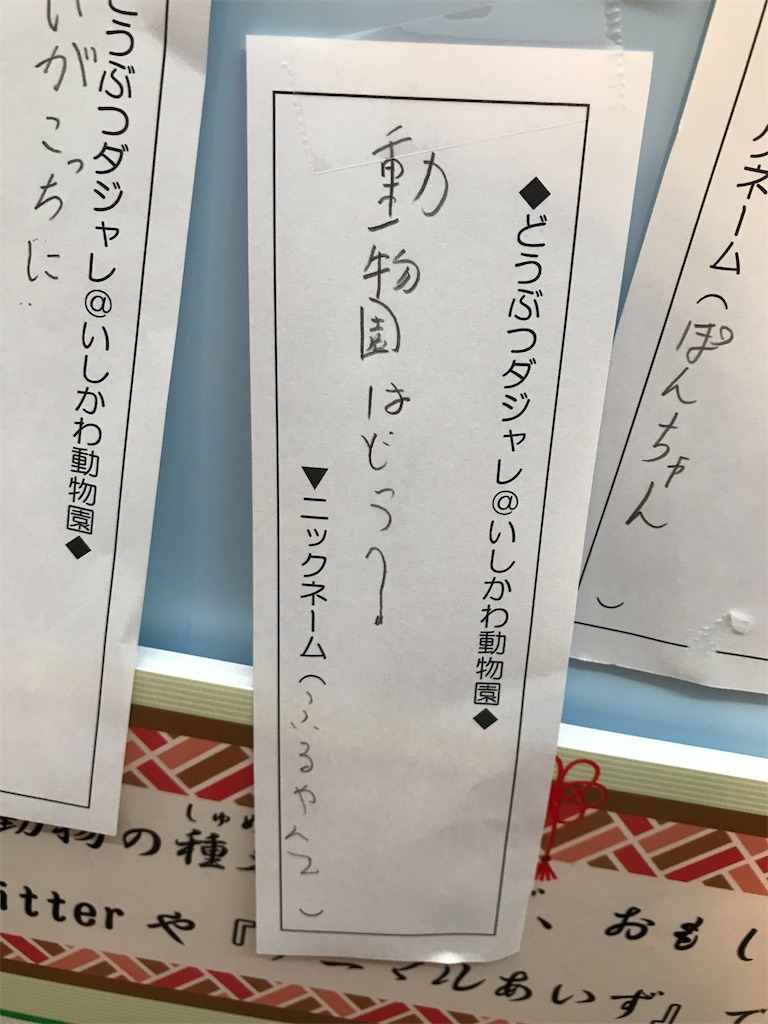 ◆どうぶつダジャレ@いしかわ動物園◆
動物園はどうー
▼ニックネーム(ふるやんて)
ネーム(ぽんちゃん)
どうぶつダジャレ@いしかわ動物園◆
いがこっちに
動物の種
しゅ
itterや『
、おもし
マルあいず』で